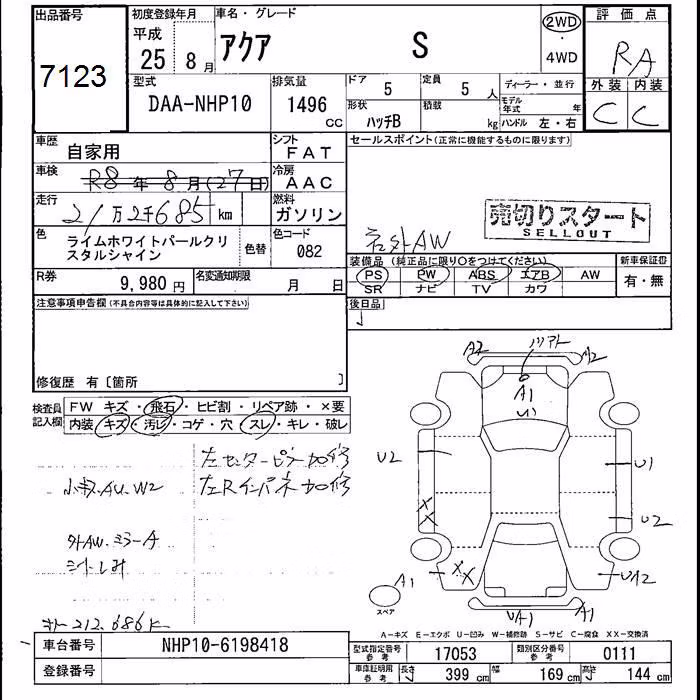 出品番号
7123
初度登録年月
平成
25年 8月
車名・グレード
アクア S
2WD
・
4WD
評価点
RA
外装 内装
C C
型式
DAA-NHP10
排気量
1496 CC
ドア
5
定員
5 人
ディーラー・並行
形状
ハッチB
積載
kg
モデル年式 年
ハンドル 左・右
車歴
自家用
シフト
FAT
車検
R8年8月(27日)
冷房
AAC
走行
21万2千685km
燃料
ガソリン
色
ライムホワイトパールクリスタルシャイン
色替
色コード
082
R券
9,980円
名変通知期限
月 日
セールスポイント(正常に機能するものに限ります)
売切りスタート
SELLOUT
社外AW
装備品(純正品に限り○をつけてください)
PS PW ABS エアB AW
SR ナビ TV カワ
新車保証書
有・無
後日品
注意事項申告欄(不具合内容等は具体的に記入して下さい)
修復歴 有〔箇所 〕
検査員記入欄
FW キズ・飛石・ヒビ割・リペア跡・×要
内装 キズ・汚レ・コゲ・穴・スレ・キレ・破レ
左センターピラー加修
左Rインパネ加修
小キズ.AU.W2
外AW.ミラーA
シートしみ
キロ212,686K
A2
A2
A1
U1
U2
U1
U2
A1
XX
XX
UA2
UA1
A1
スペア
A-キズ E-エクボ U-凹み W-補修跡 S-サビ C-腐食 XX-交換済
車台番号
NHP10-6198418
登録番号
型式指定番号
参考
17053
類別区分番号
参考
0111
車庫証明用
参考
長さ
399 cm
幅
169 cm
高さ
144 cm